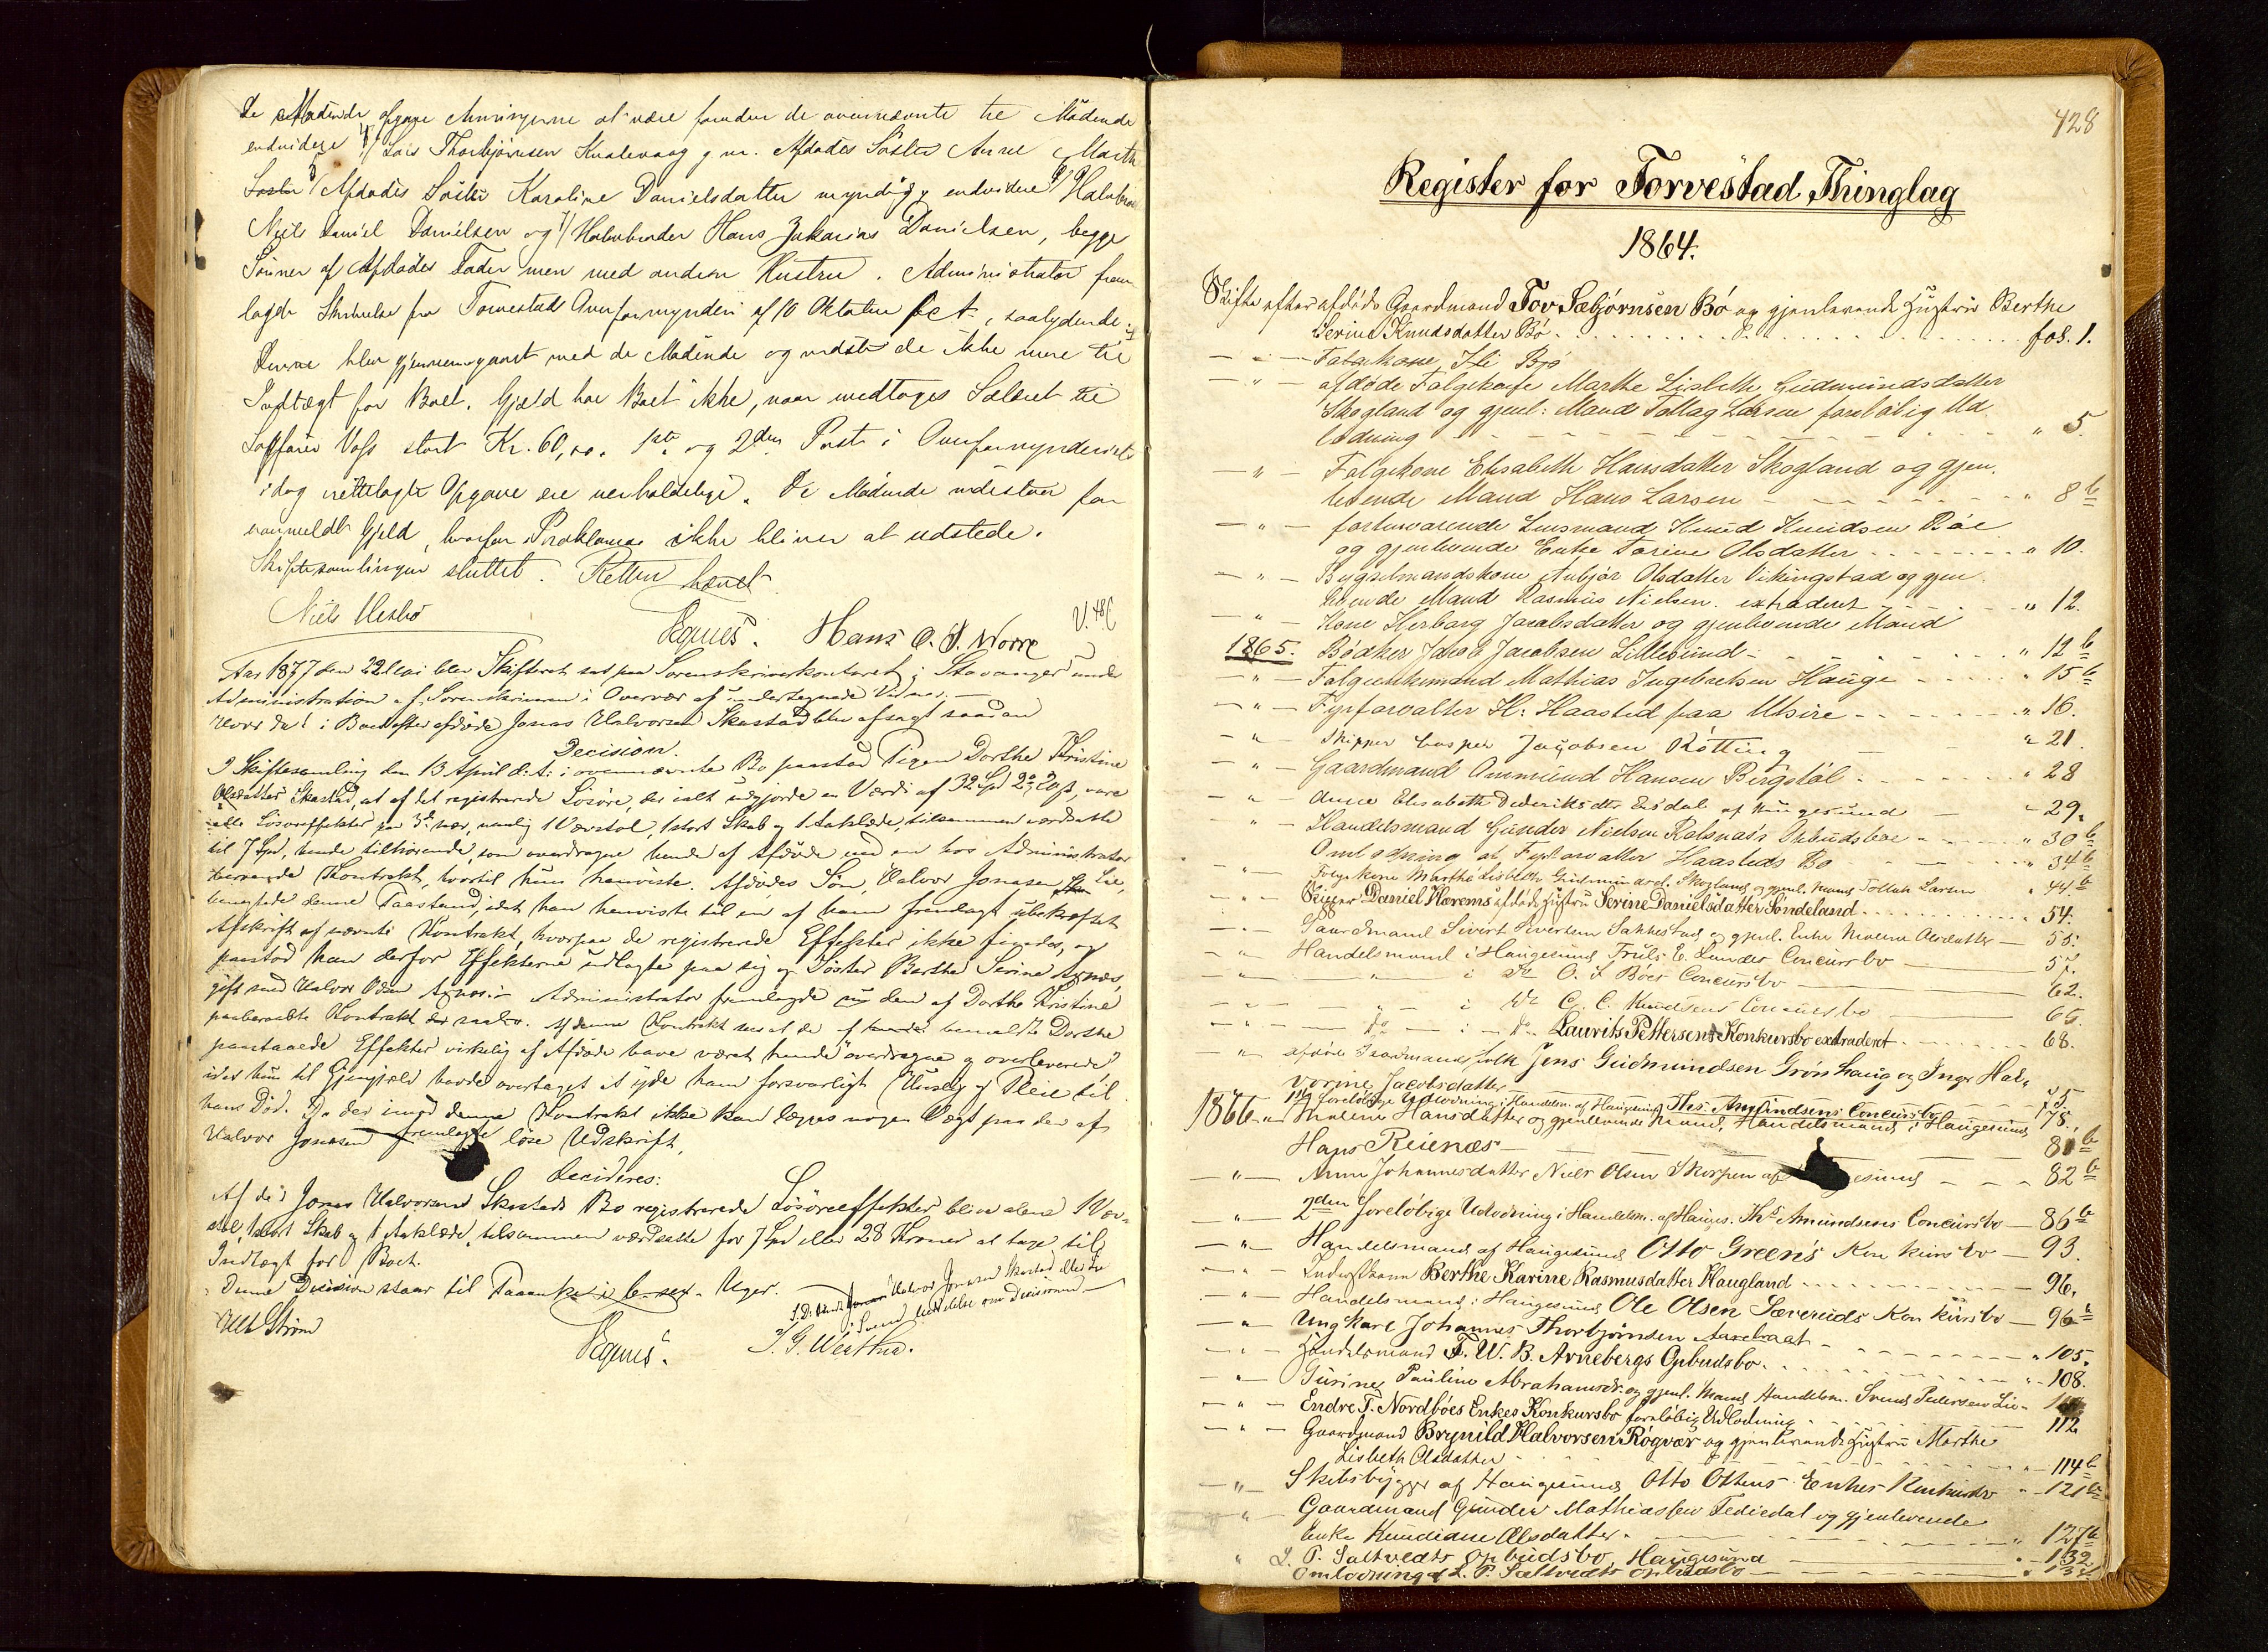 De Mødende opgave Arvingerne at være foruden de ovennævnte til Mødende
endvidere Lars Thorbjørnsen Kvalevaag g. m. Afdødes Søster Anne Marthe
Afdødes Søster Karoline Danielsdatter myndig, endvidere Halvbroder
Niels Daniel Danielsen og 7/ Halvbroder Hans Zakarias Danielsen, begge
Sønner af Afdødes Fader men med anden Hustru. Administrator frem
lagde Skrivelse fra Torvestad Overformynderi af 10 Oktober f. A., saalydende:
Denne blev gjennemgaaet med de Mødende og vidste de ikke mere til
Indtægt for Boet. Gjæld har Boet ikke, naar undtages Salæret til
Sagfører Voss stort Kr. 60,00. 1ste og 2den Post i Overformynderiets
idag rettelagte Opgave ere uerholdelige. De Mødende indestaar for
uanmeldt Gjeld, hvorfor Proklama ikke bliver at udstede.
Skiftesamlingen sluttet. Retten hævet
Niels
Hans O. S. Worre
Aar 1877 den 22 Mai blev Skifteret sat paa Sorenskriverkontoret i Stavanger under
Administration af Sorenskriveren i Overvær af undertegnede Vidner:
Hvor da i Boet efter afdøde Jonas Halvorsen Skastad blev afsagt saadan
Decision.
I Skiftesamling den 13 April d. A. i ovennævnte Bo paastod Pigen Dorthe Kristine
Olsdatter Skastad, at af det registrerede Løsøre, der ialt udgjorde en Værdi af 32 Spd 2 , vare
alle Løsøreffekter paa 3de nær, nemlig 1 Vævstol, 1 stort Skab og 1 Aaklæde, tilsammen værdsatte
til 7 Spd, hende tilhørende som overdragne hende af Afdøde ved en hos Administrator
beroende Kontrakt, hvortil hun henviste. Afdødes Søn, Halvor Jonasen Lie,
benegtede denne Paastand, idet han henviste til en af ham fremlagt ubekræftet
Afskrift af nævnte Kontrakt, hvorpaa de registrerede Effekter ikke findes, og
paastod han derfor Effekterne udlagte paa sig og Søster Berthe Serine Axnæs,
gift med Halvor Odin Axnæs. Administrator fremlagde nu den af Dorthe Kristine
paaberaabte Kontrakt saal. Af denne Kontrakt sees at de af bemeldte Dorthe
paastaaede Effekter virkelig af Afdøde have været hende overdragne og overleverede
idet hun til Gjengjæld havde overtaget at yde ham forsvarligt Huusly og Pleie til
hans Død. Da der imod denne Kontrakt ikke kan lægges nogen Vægt paa den af
Halvor Jonasen fremlagte løse Udskrift,
decideres:
Af de i Jonas Halvorsens Skastads Bo registrerede Løsøreeffekter blive alene 1 Væv-
stol, 1 stort Skab og 1 Aaklæde, tilsammen værdsatte for 7 Spd eller 28 Kroner at tage til
Indtægt for Boet.
Denne Decision staar til Paaanke i 6 - sex - Uger.
Halvor Jonasen Skastad
Underretning om Decisionen
Strøm
428
Register for Torvestad Thinglag
1864.
Skifte efter afdøde Gaardmand Tov Sæbjørnsen Bø og gjenlevende Hustru Berthe
Serine Knudsdatter Bø . . . . fol. 1.
— " — Bø
— " — afdøde Folgekone Marthe Lisbeth Gudmundsdatter
Skogland og gjenl: Mand Tollag Larsen foreløbig Ud
lodning - - - " 5.
— " — Folgekone Elisabeth Hansdatter Skogland og gjen.
levende Mand Hans Larsen - - - " 8 b
— " — forhenværende Lensmand Knud Knudsen Bøe
og gjenlevende Enke Torine Olsdatter - - - " 10.
— " — Bygselmandskone Anbjør Olsdatter Vikingstad og gjen
levende Mand Rasmus Nielsen. extraderet - - - " 12.
— " — Kone Herborg Jacobsdatter og gjenlevende Mand
1865. Bødker Jacob Jacobsen Lillesund - - - " 12 b
— " — Folgeenkemand Mathias Ingebretsen Hauge - - - " 15 b
— " — Fyrforvalter H: Haasted paa Utsire - - - " 16.
— " Skipper Casper Jacobsen Røtting — " 21.
— " — Gaardmand Ommund Hansen Bergstøl - - - " 28
— " — Anne Elisabeth Dideriksdtr Eisdal af Haugesund — " 29.
— " — Handelsmand Gunder Nielsen Rabsnæs Opbudsboe - - - " 30 b
Omlodning af Fyrforvalter Haasteds Bo " 34 b
— " Folgekone Marthe Lisbeth Gudmundsd. Skogland og gjenl. Mand Tollak Larsen " 44 b
— " — Skipper Daniel Hærems afdøde Hustru Serine Danielsdatter Søndeland . . . . 54.
— " — Gaardmand Sivert Sivertsen Sakkestad og gjenl. Enke Malene Olsdatter — 55.
— " Handelsmand i Haugesund Truls E. Lundes Concursbo — 57.
— " — " i Do O. S. Böes Concursbo — 62.
— " — " — i Do C. C. Knudsens Concursbo — 65.
— " — — Do — i — Do — Laurits Pettersens Konkursbo extraderet . . . . 68.
— " afdøde Gaardmandsfolk Jens Gudmundsen Grønhaug og Inger Hal-
vorine Jacobsdatter — 75.
1ste foreløbige Udlodning i Handelsm. af Haugesund Ths. Amundsens Concursbo — 78.
1866. " Malene Hansdatter og gjenlevende Mand, Handelsmand i Haugesund
Hans Reienæs — 80 b
— " — Anne Johannesdatter Niels Olsen Skorpen af esund — 82 b
— " — 2den foreløbige Udlodning i Handelsm. af Hauges. Ths Amundsens Concursbo — 86 b
— " — Handelsmand af Haugesund Otto Greens Konkursbo — 93.
— " — Berthe Karine Rasmusdatter Haugland . . . . — 96.
— " — Handelsmand i Haugesund Ole Olsen Sævereids Konkursbo — 96 b
— " — Ungkarl Johannes Thorbjørnsen Aarebraat - - - " 105.
— " — Handelsmand F. W. B. Arnebergs Opbudsbo . . . . " 108.
— " — Gurine Pauline Abrahamsdr. og gjenl. Mand Handelsm. Svend Pedersen Lie -
— " — Endre T. Nordbøes Enkes Konkursbo foreløbig Udlodning . . . 112
— " — Gaardmand Brynild Halvorsen Røgvær og gjenlevende Hustru Marthe
Lisbeth Olsdatter . . . . " 114 b
— " — Skibsbygger af Haugesund Otto Ottens Enkes Konkursbo " 121 b
— " Gaardmand Gunder Mathiassen Fediedal og gjenlevende
Enke Knudiane Olsdatter. — " 127 b
" L. P. Saltvedts Opbudsbo, Haugesund — " 132
Omlodning af L. P. Saltvedts Opbudsbo —